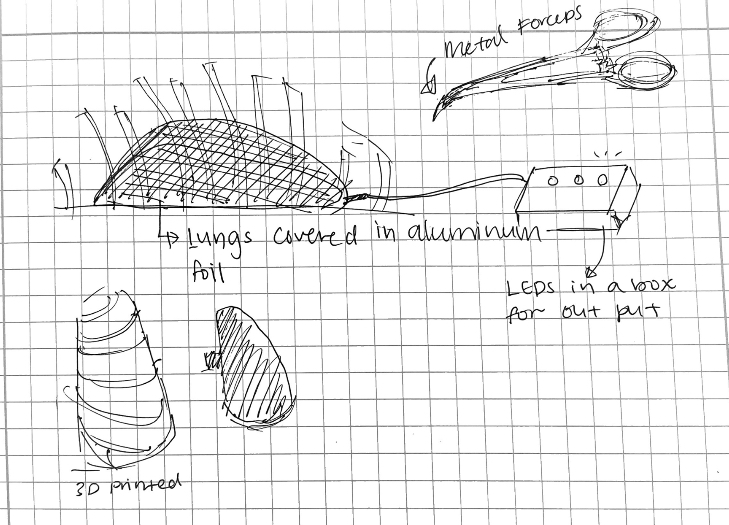 Metal Forceps
Lungs covered in aluminum
foil
LEDs in a box
for out put
3D printed